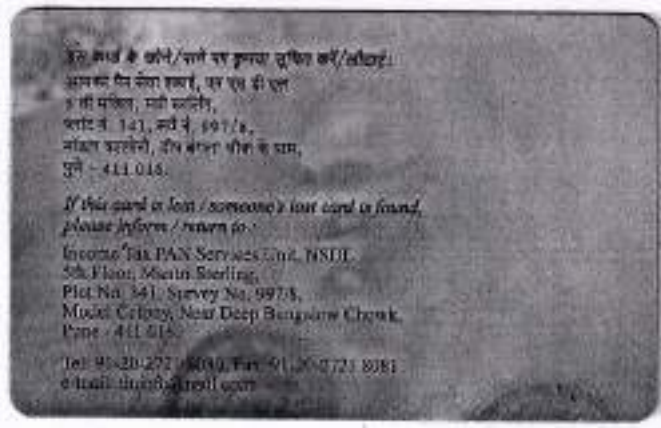 इस कार्ड के खोने/पाने पर कृपया सूचित करें/लौटाएं:
आयकर पैन सेवा इकाई, एन एस डी एल
5 वी मंजिल, मंत्री स्टर्लिंग,
प्लॉट नं. 341, सर्वे नं. 997/8,
मॉडल कालोनी, दीप बंगला चौक के पास,
पुणे - 411 016.
If this card is lost / someone's lost card is found,
please inform / return to :
Income Tax PAN Services Unit, NSDL
5th Floor, Mantri Sterling,
Plot No. 341, Survey No. 997/8,
Model Colony, Near Deep Bungalow Chowk,
Pune - 411 016.
Tel: 91-20-2721 8080, Fax: 91-20-2721 8081
e-mail: